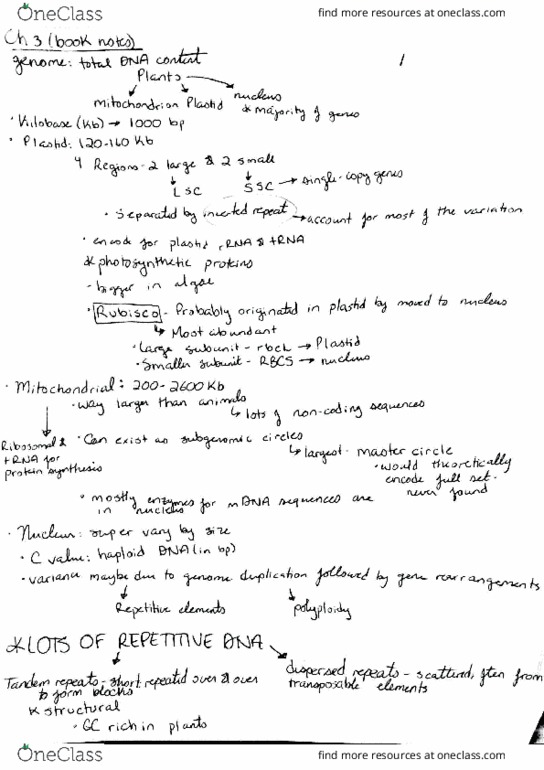 OneClass
find more resources at oneclass.com
Ch 3 (book notes)
genome: total DNA content
1
Plants
mitochondrion Plastid nucleus
* majority of genes
· Kilobase (Kb) → 1000 bp
· Plastid: 120-160 Kb
4 Regions - 2 large & 2 small
LSC SSC → single-copy genes
· Separated by inverted repeat → account for most of the variation
· encode for plastid rRNA & tRNA
* photosynthetic proteins
- bigger in algae
· Rubisco - Probably originated in plastid by moved to nucleus
↳ Most abundant
· Large subunit - rbcL → Plastid
· Smaller subunit - RBCS → nucleus
· Mitochondrial: 200-2600 Kb
· way larger than animals
↳ lots of non-coding sequences
Ribosomal &
tRNA for
protein synthesis
· Can exist as subgenomic circles
↳ largest - master circle
· would theoretically
encode full set -
never found
· mostly enzymes for mDNA sequences are
in nucleus
· Nucleur: super vary by size
· C value: haploid DNA (in bp)
· variance maybe due to genome duplication followed by gene rearrangements
Repetitive elements polyploidy
* LOTS OF REPETITIVE DNA
Tandem repeats - short repeated over & over
to form blocks
* structural
· GC rich in plants
dispersed repeats - scattered, often from
transposable elements
OneClass
find more resources at oneclass.com